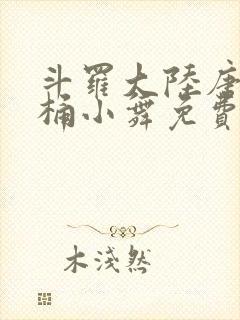 斗羅大陸唐
桶小舞免費
木淺然